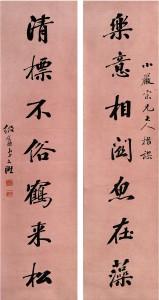 樂意相關魚在藻
小巖宗兄大人楷誤
清標不俗鶴來松